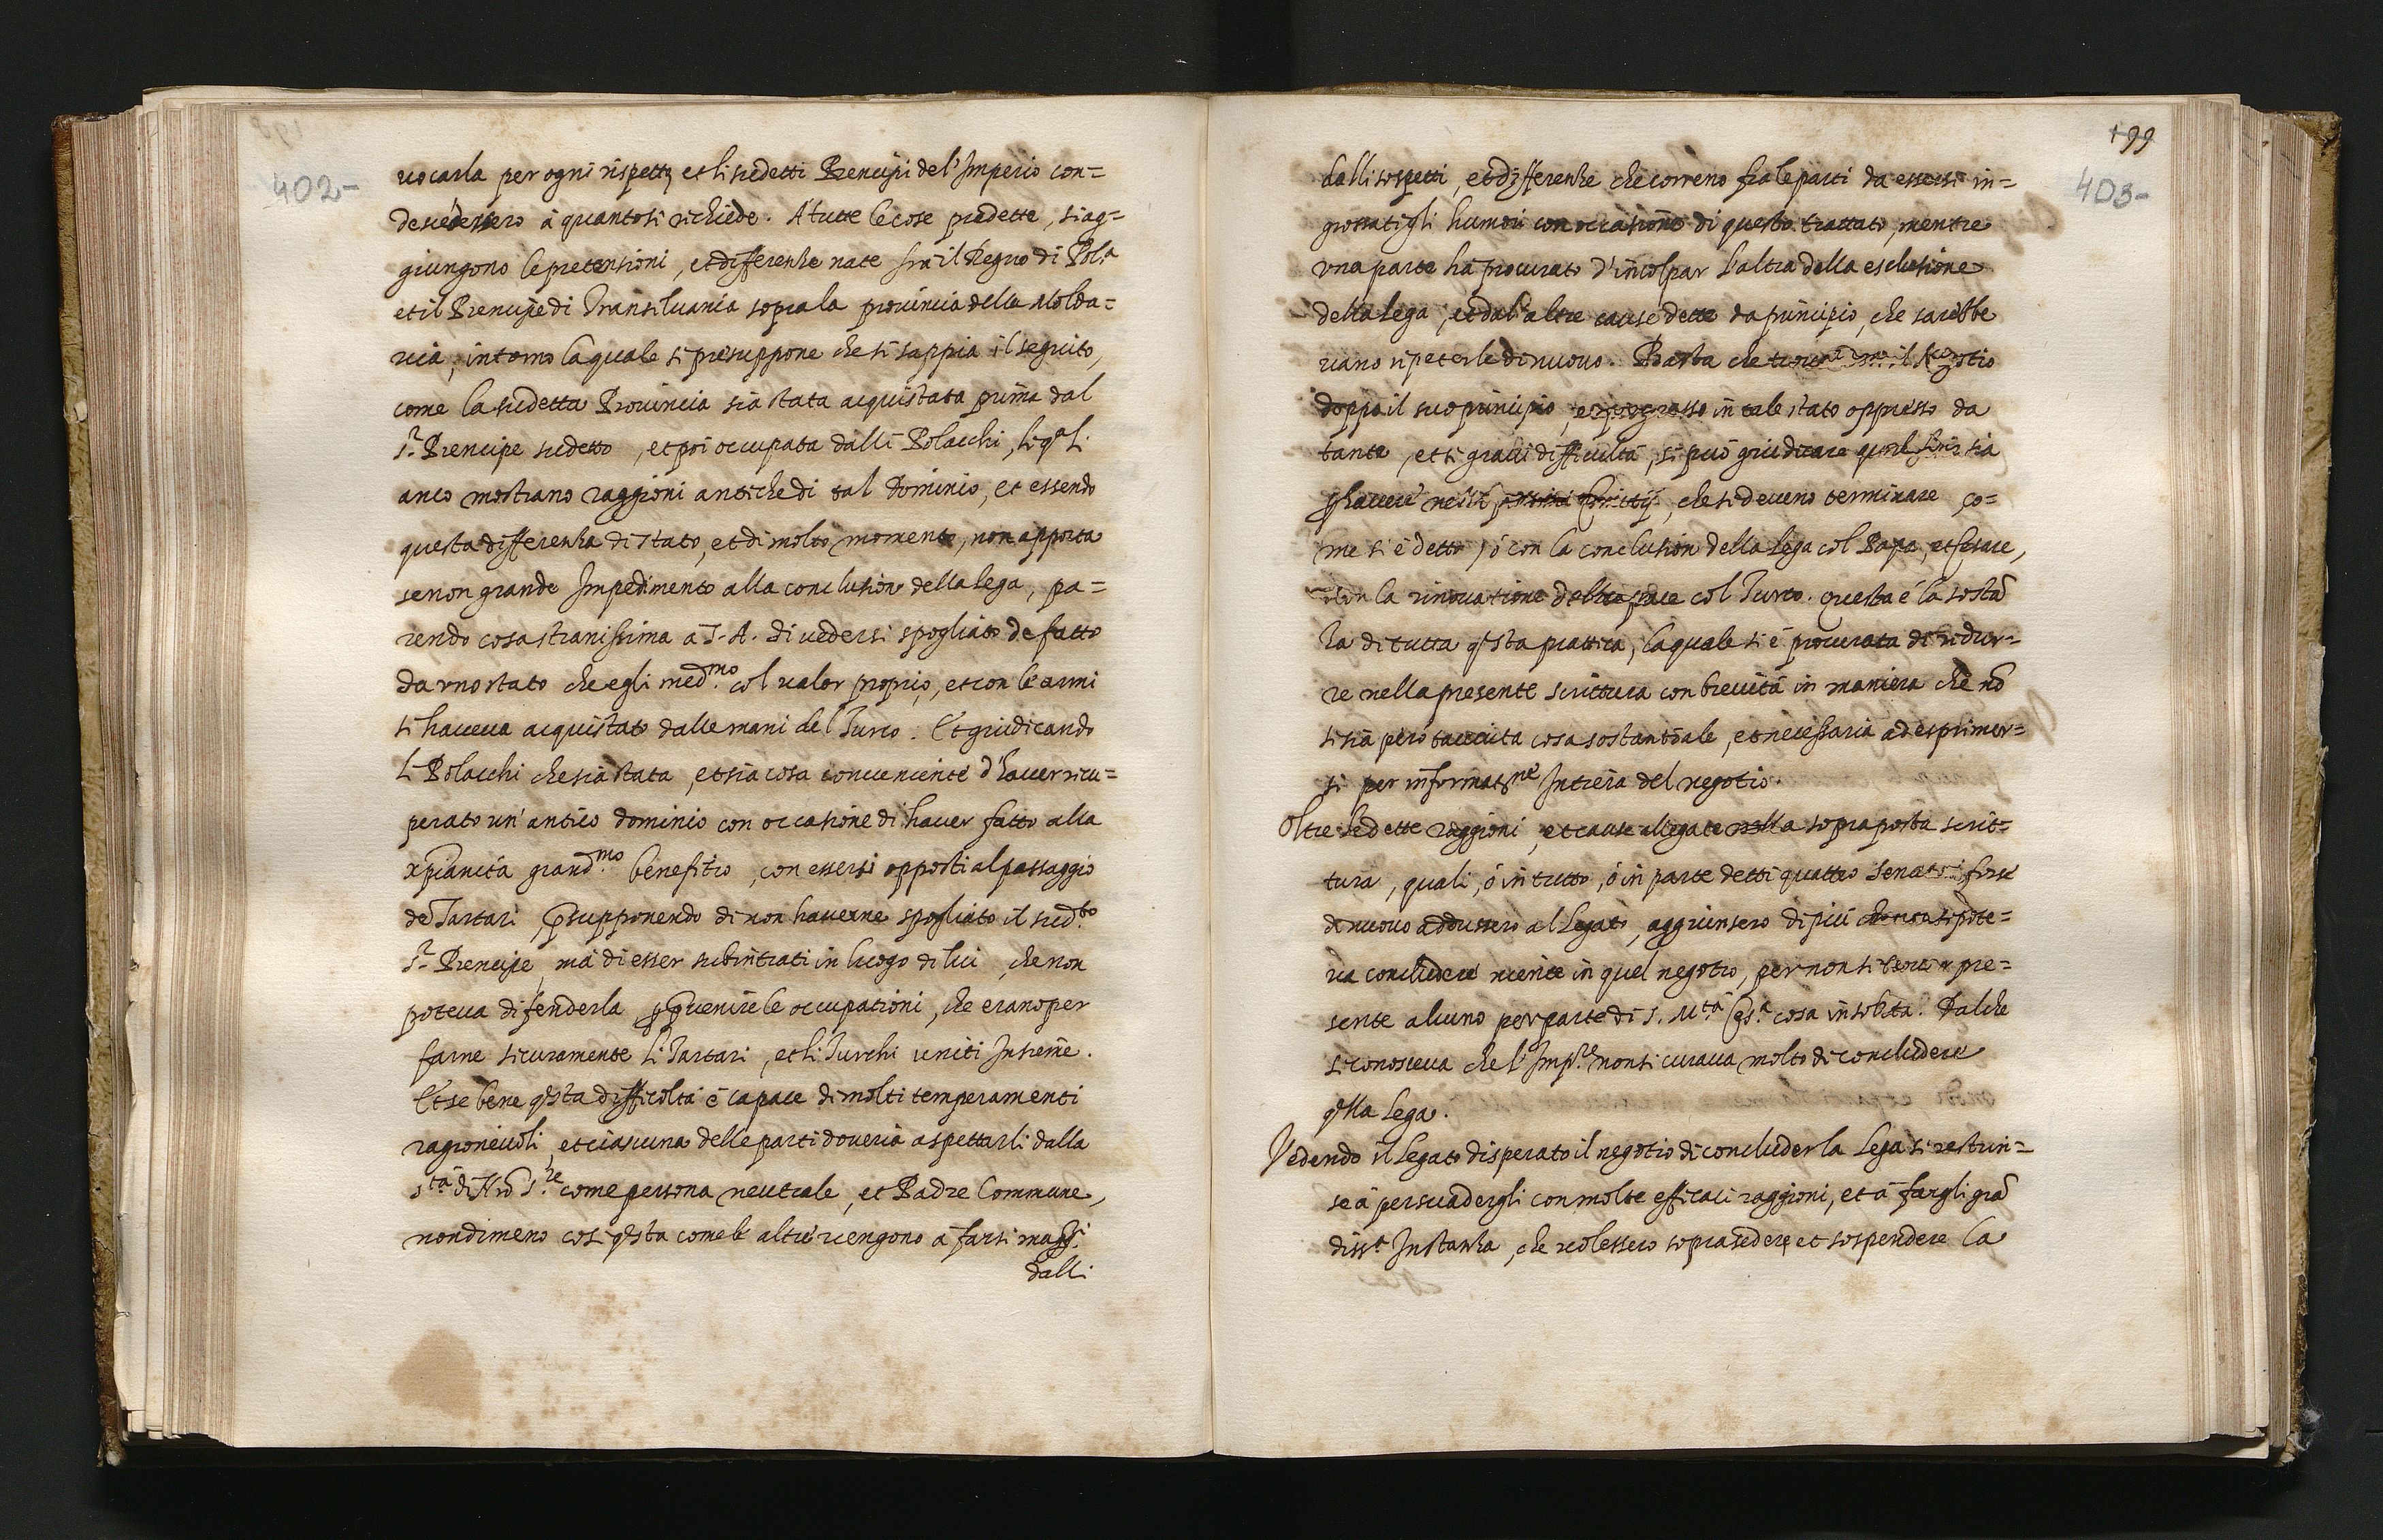 402-
uocarla per ogni rispetto, et li sudetti Prencipi del'Imperio con=
descedessero à quanto si richiede. A' tutte le cose predette, si ag=
giungono le pretensioni, et differenze nate frà il Regno di Pol.a
et il Prencipe di Transiluania sopra la prouincia della Molda=
uia, intorno la quale si presuppone che si sappia il seguito,
come la sudetta Prouincia sia stata acquistata prima dal
S.r Prencipe sudetto, et poi occupata dalli Polacchi, li q.a.li
anco mostrano raggioni antiche di tal Dominio, et essendo
questa differenza di stato, et di molto momento, non apporta
se non grande Impedimento alla conclusion della lega, pa=
rendo cosa stranissima a S. A. di uedersi spogliato de fatto
da vno stato che egli med.mo col ualor proprio, et con le armi
si haueua acquistato dalle mani del Turco. Et giudicando
li Polacchi che sia stata, et sia cosa conueniente d'hauer ricu=
perato un'antico dominio con occasione di hauer fatto alla
xp̄ianità grand.mo benefitio, con essersi opposti al passaggio
de Tartari, p̄supponendo di non hauerne spogliato il sud.to
S.r Prencipe, mà di esser subintrati in luogo di lui, che non
poteua difenderla, ꝑ p̄uenire le occupationi, che erano per
farne sicuramente li Tartari, et li Turchi uniti Insieme.
Et se bene q̄sta difficoltà è capace di molti temperamenti
ragioneuoli, et ciascuna delle parti doueria aspettarli dalla
S.tà di N̄ro S.re come persona neutrale, et Padre Commune,
nondimeno cosi q̄sta come le altre uengono à farsi magg.i
dalli
199
403-
dalli sospetti, et differenze che correno fra le parti da essersi in=
grossati gli humori con occasione di questo trattato, mentre
vna parte hà procurato d'incolpar l'altra della esclusione
della lega, et dal'altre cause dette da principio, che sarebbe
uano ripeterle di nuouo. Basta che il Negotio
doppo il suo principio, et progresso in tale stato oppresso da
tante, et si graui difficultà, si può giudicare qual fine sia
ꝑ hauere che si deueno terminare co=
me si è detto, ò con la conclusion della lega col Papa, et Cesare,
ò con la rinouatione della pace col Turco. questa è la sostā
za di tutta q̄sta prattica, la quale si è procurata di ridur=
re nella presente scrittura con breuità in maniera che nō
si sia però tacciuta cosa sostantiale, et necessaria ad esprimer=
si per informat.ne Intiera del negotio.
Oltre le dette raggioni, et cause allegate nella sopraposta scrit=
tura, quali, ò in tutto, ò in parte detti quattro Senatori forse
di nuouo addussero al Legato, aggiunsero di più che non si pote=
ua concludere niente in quel negotio, per non si trouar pre=
sente alcuno per parte di S. M.tà Ces.a cosa insolita. Dal che
si conosceua che l'Imp.re non si curaua molto di concludere
q̄lla lega.
Vedendo il Legato disperato il negotio di concluder la lega si restrin=
se à persuadergli con molte efficaci raggioni, et à fargli grā
diss.a Instanza, che uolessero soprasedere, et sospendere la